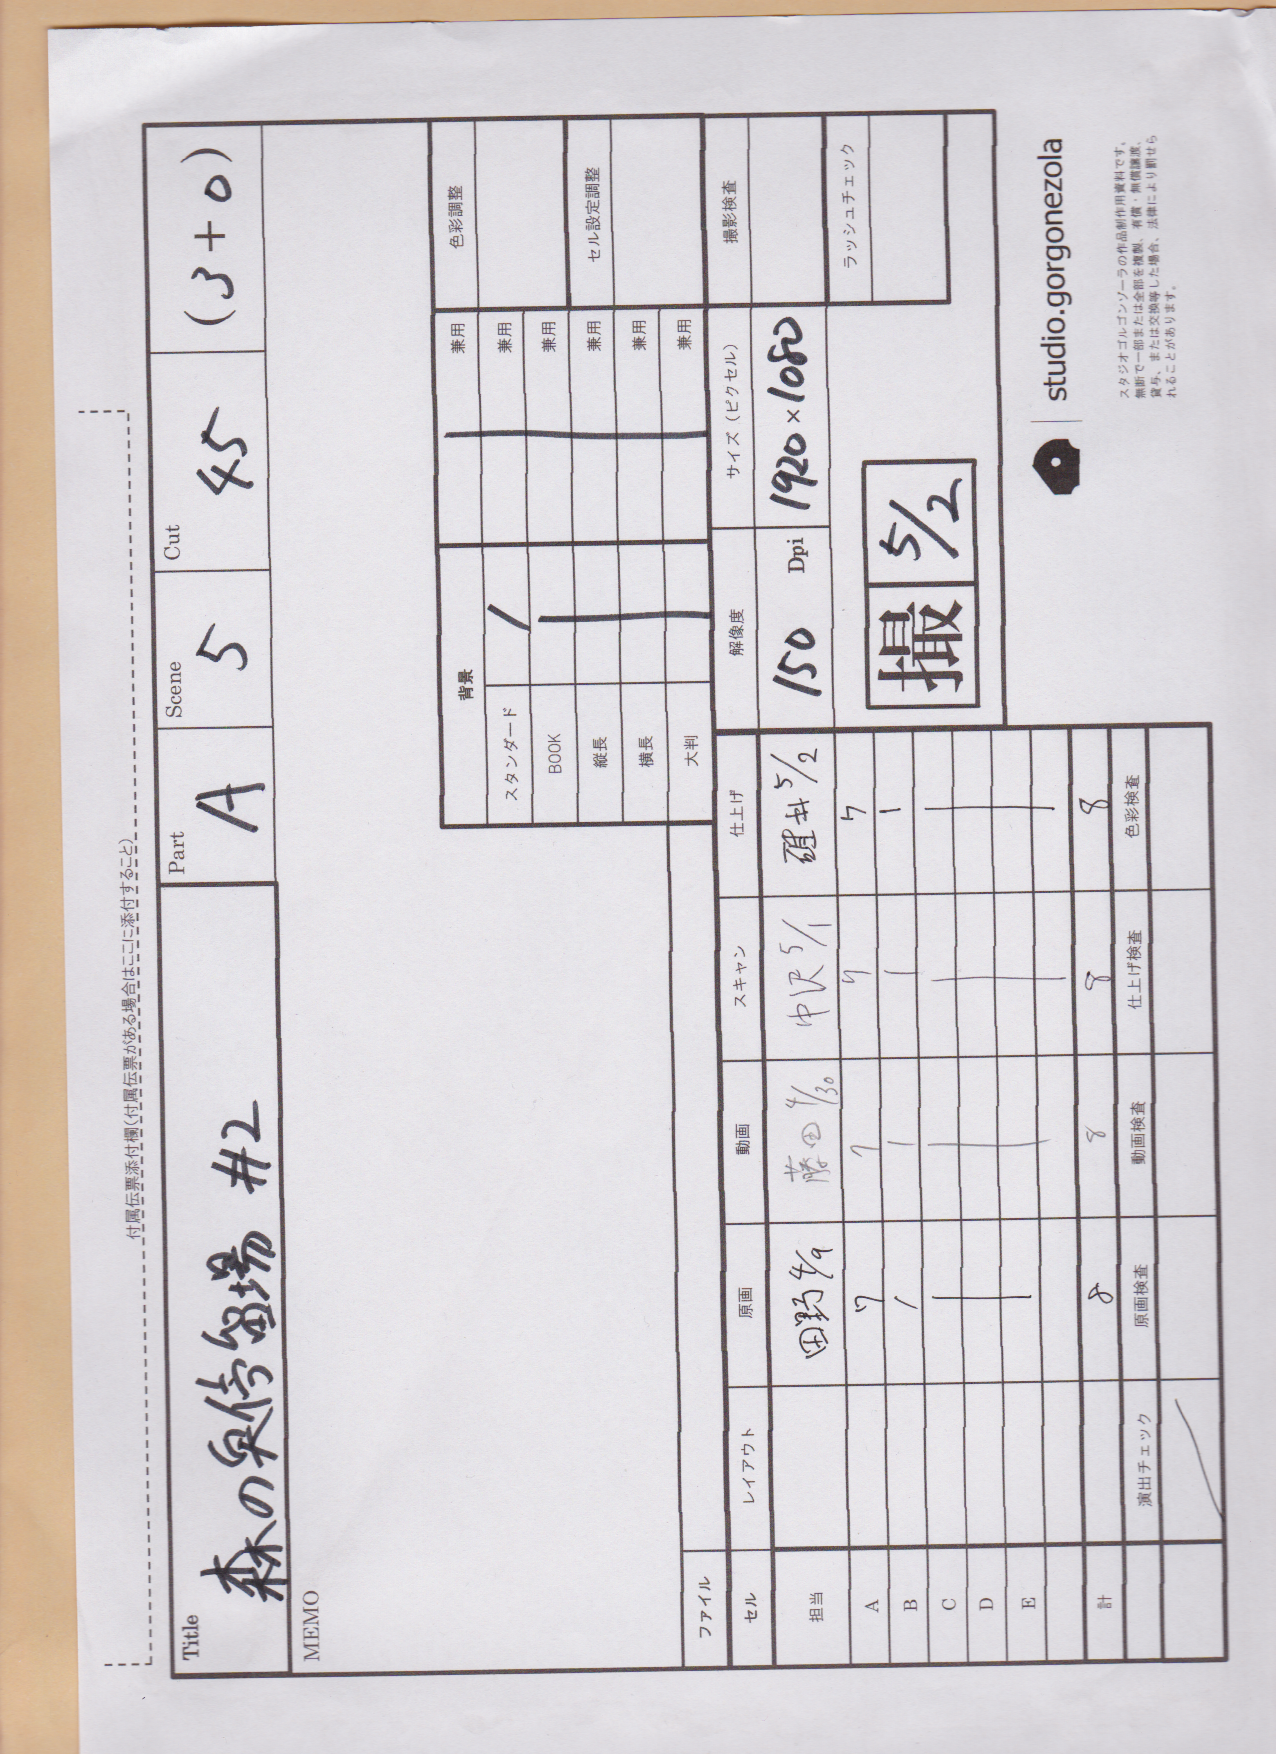 付属伝票添付欄(付属伝票がある場合はここに添付すること)
Title 森の臭停留場 #2
Part A
Scene 5
Cut 45
(3+0)
MEMO
背景
スタンダード
BOOK
縦長
横長
大判
兼用
兼用
兼用
兼用
兼用
兼用
色彩調整
セル設定調整
解像度
150 Dpi
サイズ（ピクセル）
1920×1080
撮影検査
ラッシュチェック
撮 5/2
ファイル
セル レイアウト 原画 動画 スキャン 仕上げ
担当 田野 4/9 藤田 4/30 中沢 5/1 碓井 5/2
A 7 7 7 7
B 1 1 1 1
C
D
E
計 8 8 8 8
演出チェック 原画検査 動画検査 仕上げ検査 色彩検査
studio.gorgonezola
スタジオゴルゴンゾーラの作品制作用資料です。
無断で一部または全部を複製、有償・無償譲渡、
貸与、または交換等した場合、法律により罰せら
れることがあります。